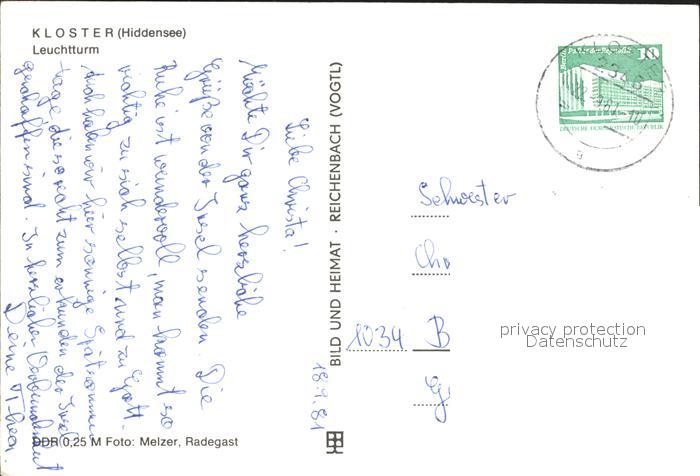 KLOSTER (Hiddensee)
Leuchtturm
Liebe Christa!
Möchte Dir ganz herzliche
Grüße von der Insel senden. Die
Ruhe ist wundervoll, man kommt so
richtig zu sich selbst und zu Gott.
Auch haben wir hier sonnige Spätsommer
tage die so recht zum erkunden der Insel
geschaffen sind. In herzlicher Verbundenheit
Deine Thea.
DDR 0,25 M Foto: Melzer, Radegast
BILD UND HEIMAT · REICHENBACH (VOGTL)
18.9.81
10
DEUTSCHE DEMOKRATISCHE REPUBLIK
Schwester
Chr
1034 B
privacy protection
Datenschutz